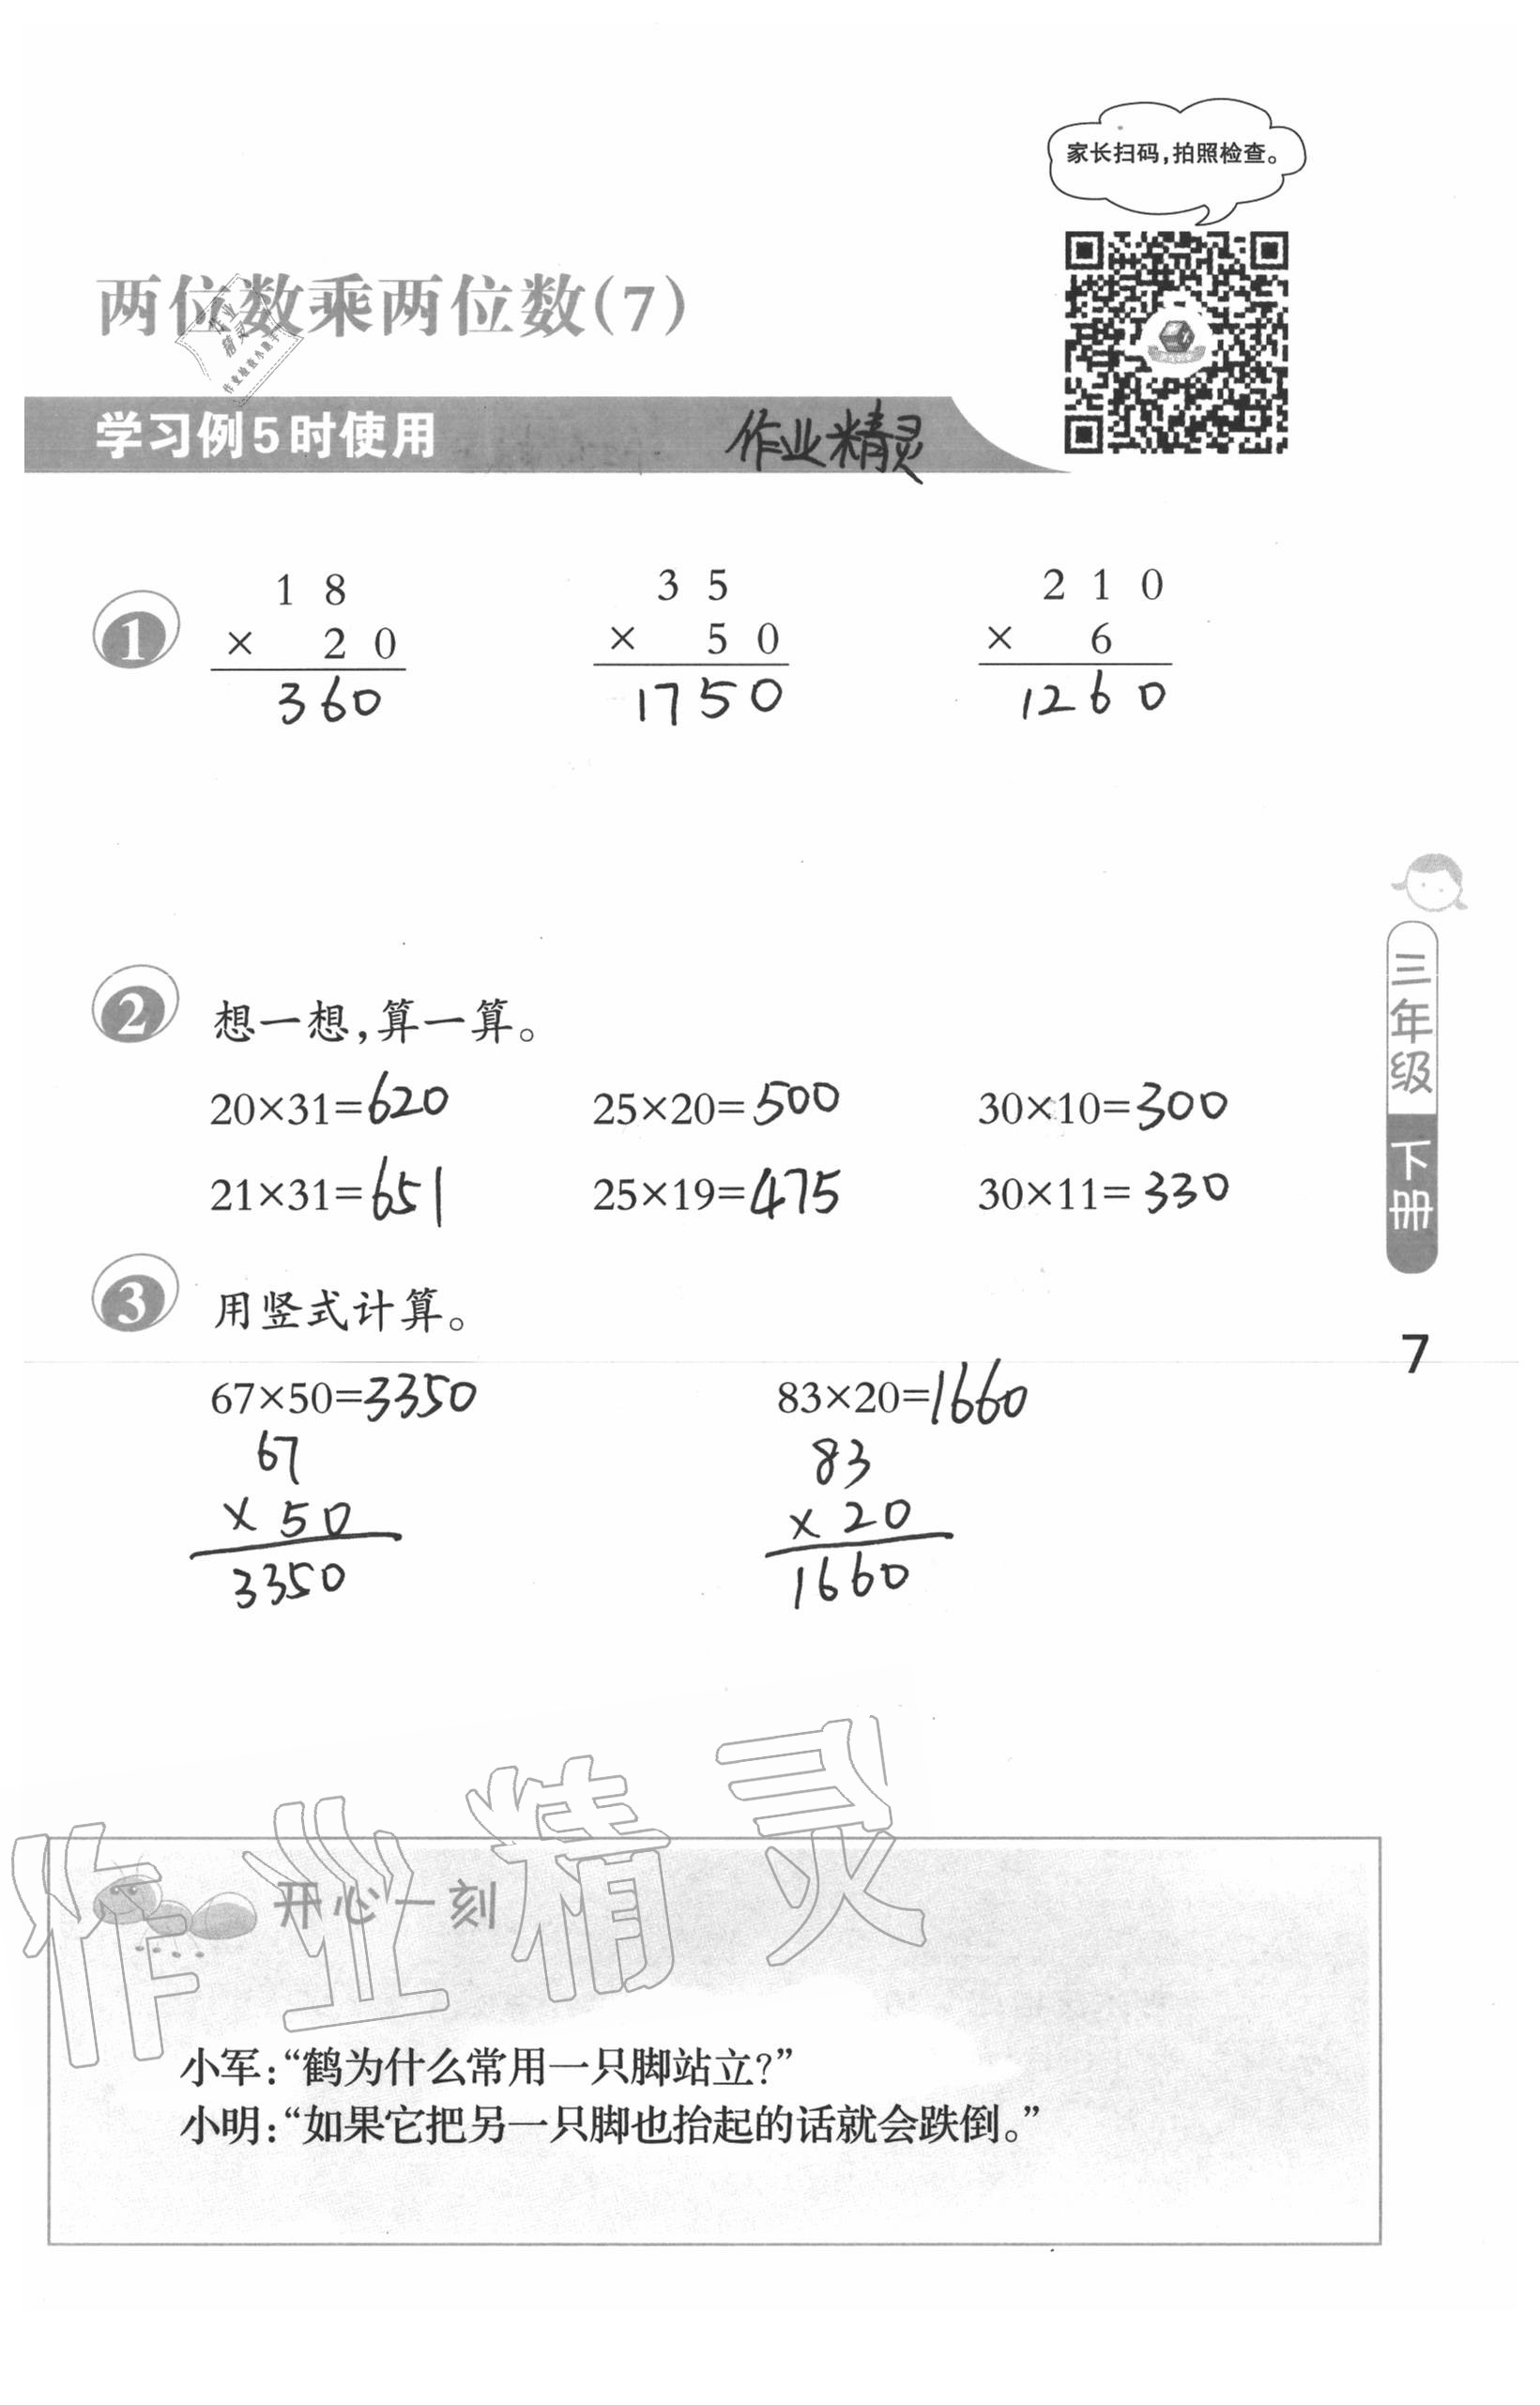 家长扫码,拍照检查。
两位数乘两位数(7)
作业
精灵
作业检查小助手
学习例5时使用 作业精灵
1
1 8
× 2 0
360
3 5
× 5 0
1750
2 1 0
× 6
1260
2 想一想,算一算。
20×31=620 25×20=500 30×10=300
21×31=651 25×19=475 30×11=330
3 用竖式计算。
67×50=3350 83×20=1660
67
× 50
3350
83
× 20
1660
三年级
下册
7
作业精灵
开心一刻
小军:“鹤为什么常用一只脚站立?”
小明:“如果它把另一只脚也抬起的话就会跌倒。”